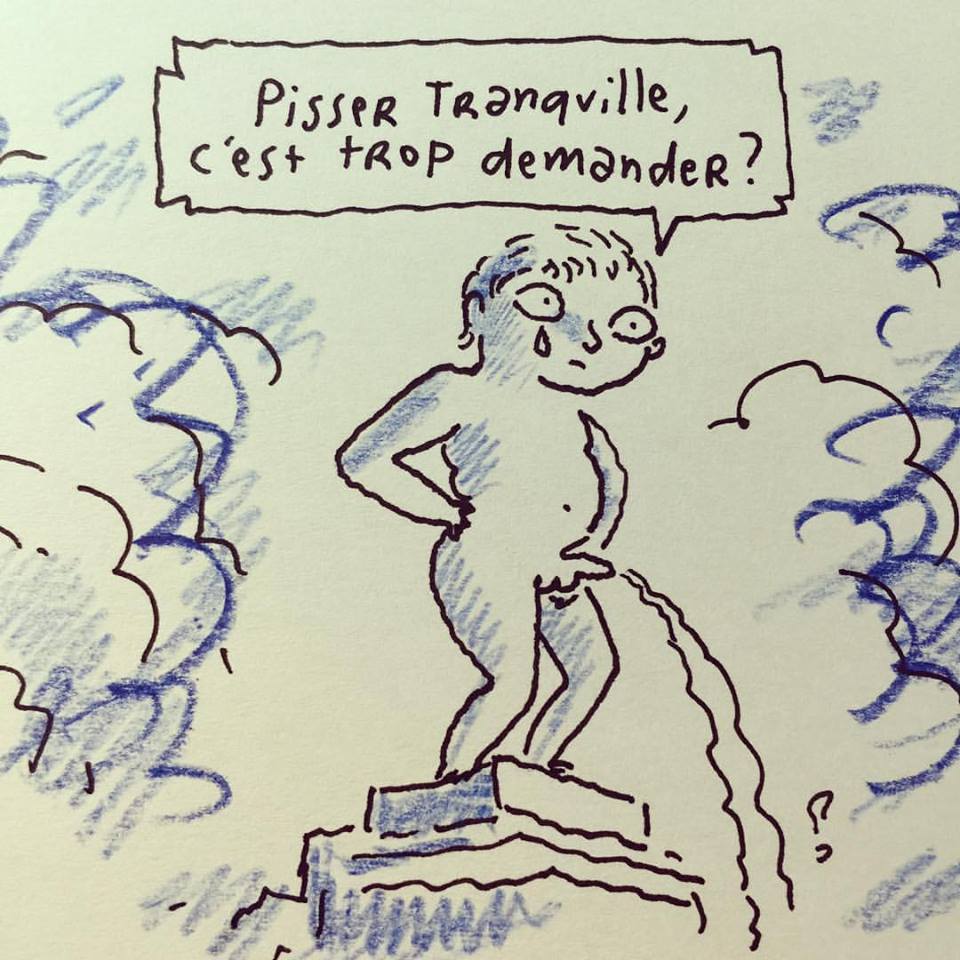 Pisser Tranqville,
c'est trop demander?
?